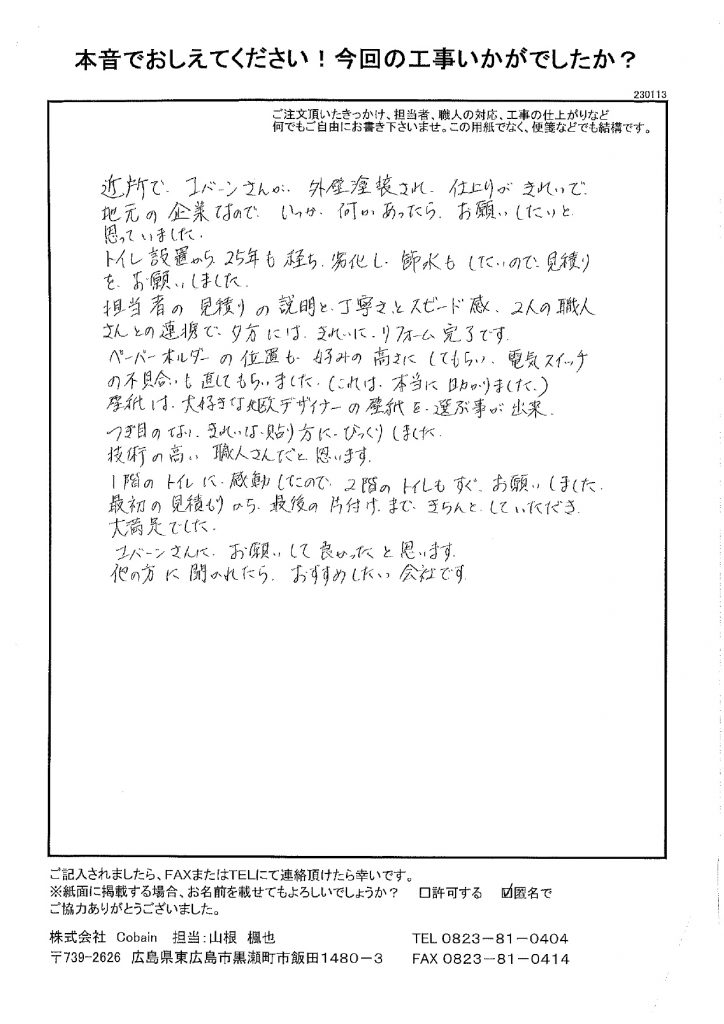 本音でおしえてください！今回の工事いかがでしたか？
230113
ご注文頂いたきっかけ、担当者、職人の対応、工事の仕上がりなど
何でもご自由にお書き下さいませ。この用紙でなく、便箋などでも結構です。
近所で、コバーンさんが、外壁塗装され、仕上りがきれいで
地元の企業なので、いつか、何かあったら、お願いしたいと
思っていました。
トイレ設置から、25年も経ち、劣化し、節水もしたいので、見積り
を、お願いしました。
担当者の見積りの説明と、丁寧さとスピード感、2人の職人
さんとの連携で、夕方には、きれいに、リフォーム完了です。
ペーパーホルダーの位置も好みの高さにしてもらい、電気スイッチ
の不具合いも直してもらいました。(これは、本当に助かりました。)
壁紙は、大好きな北欧デザイナーの壁紙を、選ぶ事が出来、
つぎ目のない、きれいな貼り方に、びっくりしました。
技術の高い職人さんだと思います。
1階のトイレに、感動したので、2階のトイレもすぐ、お願いしました。
最初の見積もりから、最後の片付けまで、きちんとしていただき、
大満足でした。
コバーンさんに、お願いして良かったと思います。
他の方に聞かれたら、おすすめしたい会社です。
ご記入されましたら、FAXまたはTELにて連絡頂けたら幸いです。
※紙面に掲載する場合、お名前を載せてもよろしいでしょうか？　□許可する　☑匿名で
ご協力ありがとうございました。
株式会社　Cobain　担当：山根　楓也　TEL 0823－81－0404
〒739－2626　広島県東広島市黒瀬町市飯田1480－3　FAX 0823－81－0414